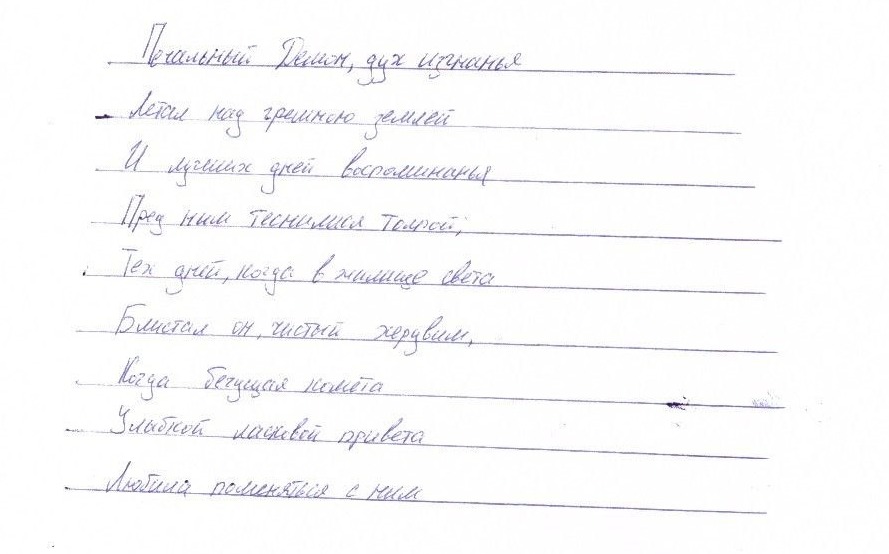 Печальный Демон, дух изгнанья
Летал над грешною землей
И лучших дней воспоминанья
Пред ним теснилися толпой;
Тех дней, когда в жилище света
Блистал он, чистый херувим,
Когда бегущая комета
Улыбкой ласковой привета
Любила поменяться с ним